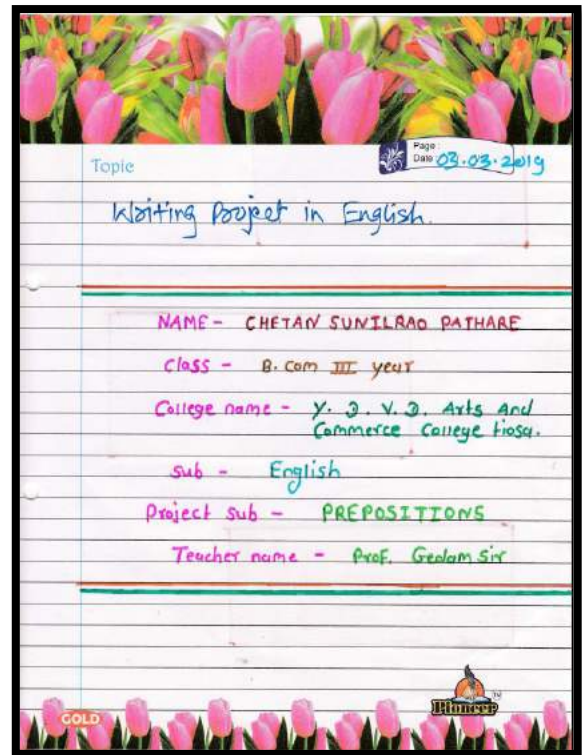 Page :
Date : 03.03.2019
Topic
Writing Project in English.
NAME - CHETAN SUNILRAO PATHARE
Class - B. Com III year
College name - Y. D. V. D. Arts And
Commerce College Tiosa.
Sub - English
Project Sub - PREPOSITIONS
Teacher name - Prof. Gedam Sir
Pioneer TM
GOLD